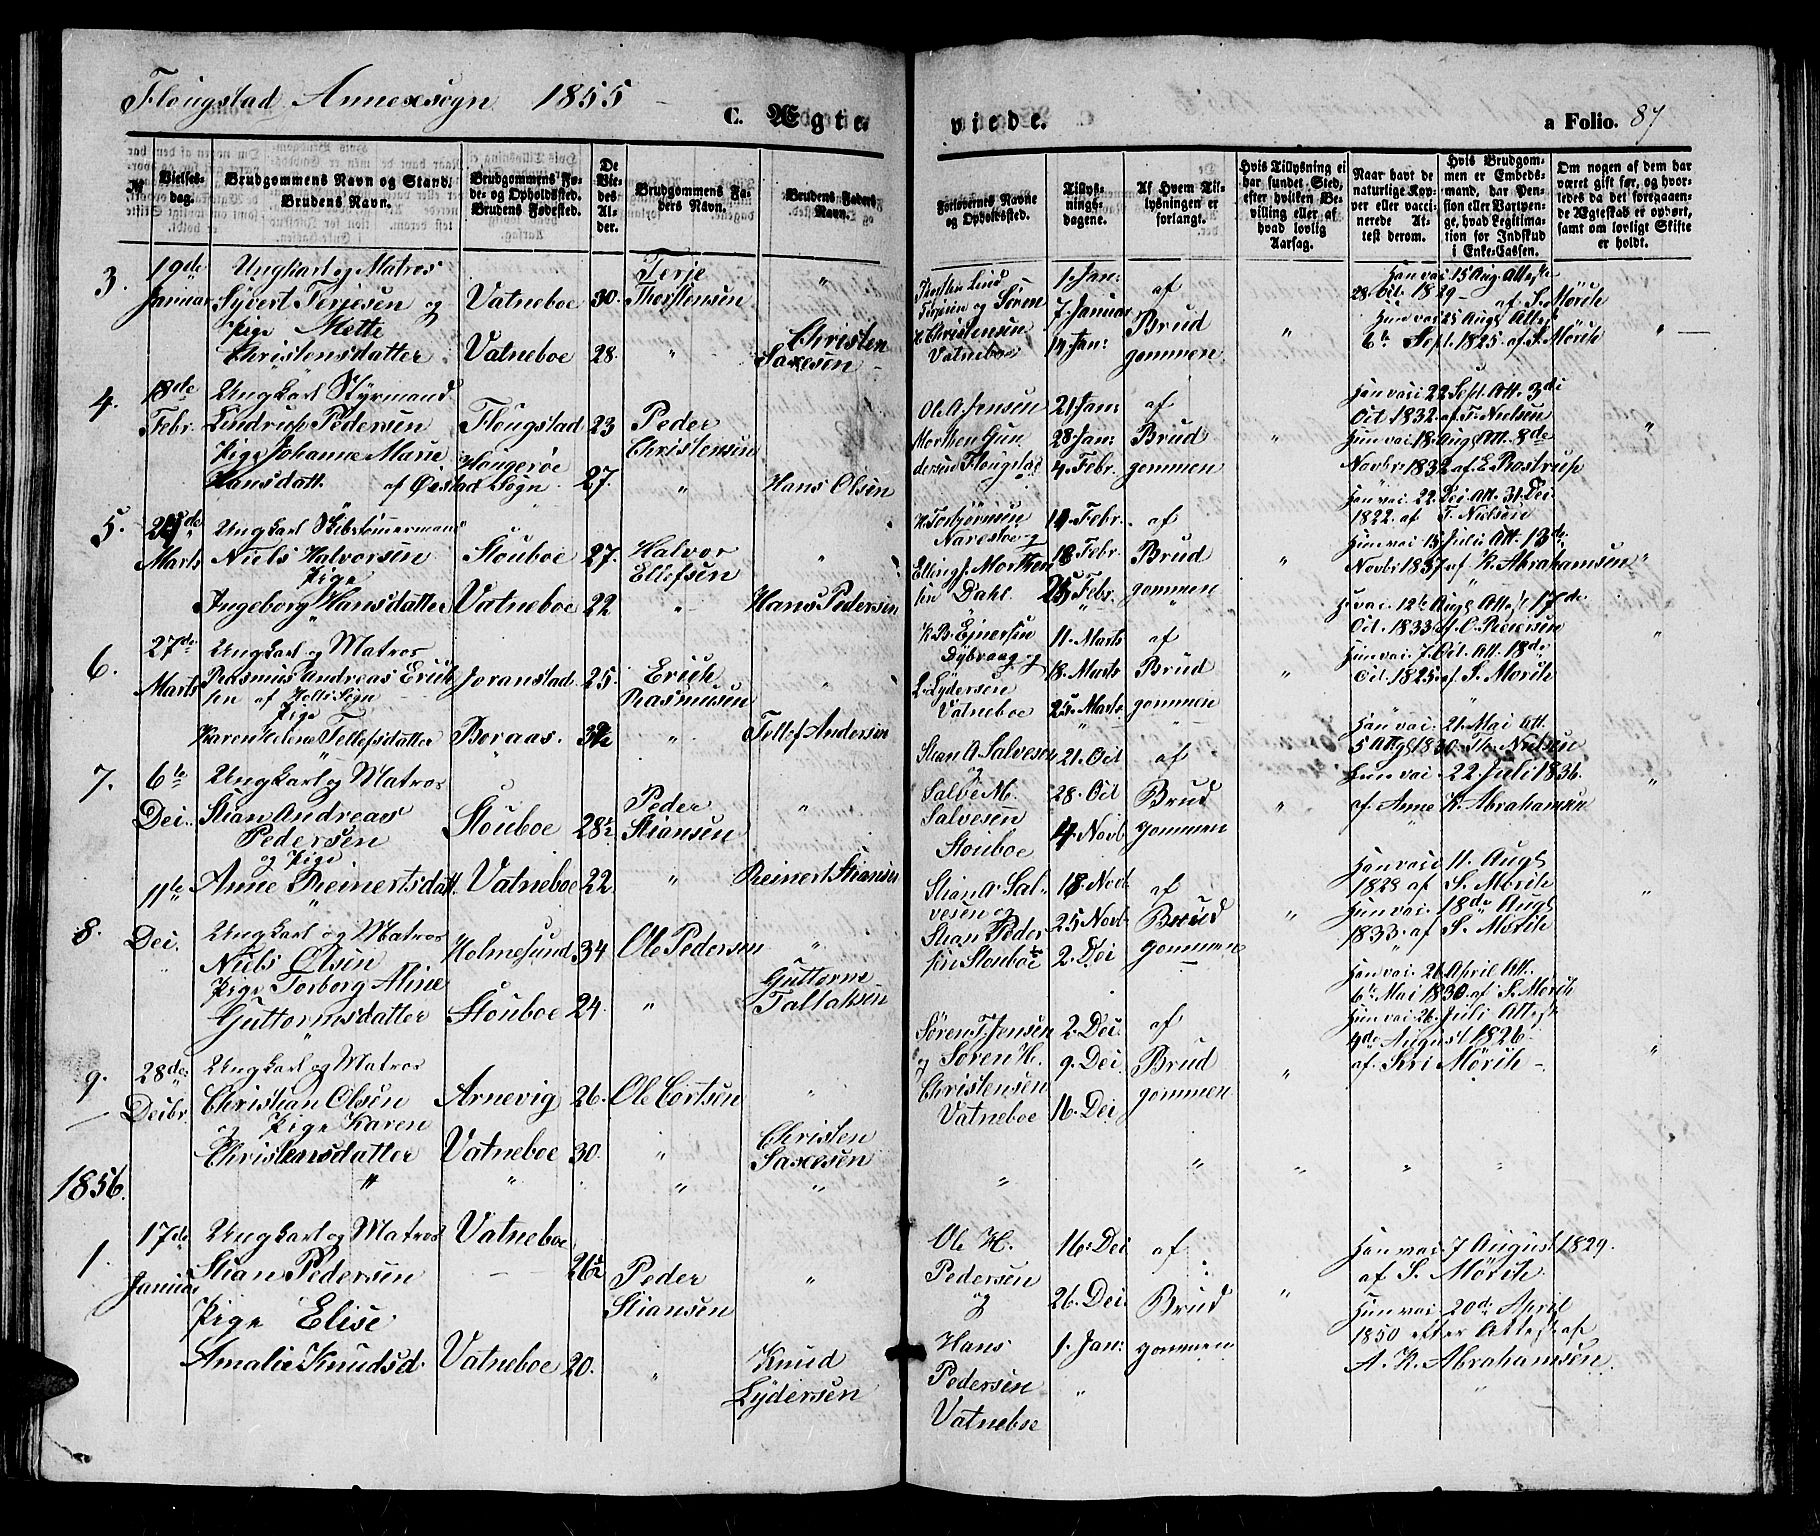 Flougstad Annexsogn 1855
C. Ægte
viede.
a Folio. 87
№
Vielses-dag.
Brudgommens Navn og Stand. Brudens Navn.
Brudgommens Føde- og Opholdssted. Brudens Fødested.
De Viedes Alder.
Brudgommens Faders Navn.
Brudens Faders Navn.
Forlovernes Navne og Opholdssted.
Tillysningsdagene.
Af Hvem Tillysningen er forlangt.
Hvis Tillysning ei har fundet Sted, efter hvilken Bevilling eller af hvad lovlig Aarsag.
Naar havt de naturlige Kopper eller vaccinerede Attest derom.
Hvis Brudgommen er Embedsmand, har Pension eller Vartpenge, hvad Legitimation for Indskud i Enke-Cassen.
Om nogen af dem har været gift før, og hvorledes da det foregaaende Ægteskab er ophørt, samt om lovligt Skifte er holdt.
3. 19de Januar
Ungkarl og Matros
Syvert Terjesen og
Pige Mette
Christensdatter
Vatneboe 30. Terje Thorstensen "
Vatneboe 28. " Christen Saxesen
Terjesen og Søren
H. Christensen
Vatneboe
1. Jan:
7 Januar
14 Jan:
af Brudgommen "
Han vac: 15 Aug. Atteste
28. Oct. 1829 af S. Mörch
Hun vac: 25 Augs Attest
6te Sept. 1825 af S. Mörch "
4. 18de Febr.
Ungkarl Styrmand
Lindrup Pedersen
Pige Johanne Marie
Hansdatt. af Øiestad Sogn
Flougstad 23 Peder Christensen
Hougerøe 27. " Hans Olsen
Ole A. Jensen
Morthen Gundersen Flougstad
21 Jan:
28 Jan:
4 Febr.
af Brudgommen "
Han vac: 22 Sept. Att. 3di
Oct. 1832 af T. Nielsen
Hun vac: 18 Augs Att. 8de
Novbr 1832 af E. Rostrup "
5. Marts
Ungkarl Skibstømmermand
Niels Halvorsen
Pige
Ingeborg Hansdatter
Stouboe 27. Halvor Ellefsen "
Vatneboe 22 " Hans Pedersen
K. Torbjørnsen
Narestøe og
Elling J. Morthensen Dahl.
Febr.
18 Febr.
25 Febr.
af Brudgommen "
Han vac: 22. Dec. Att. 31. Dec.
1822. af T. Nielsen
Hun vac: 15 Julii Att. 13de
Novbr 1837 af K. Abrahamsen "
6. 27de Marts
Ungkarl og Matros
Rasmus Andreas Erichsen af Holts Sogn
Pige
Karen Helene Tellefsdatter
Joranstad 25. Erich Rasmusen "
Boraas. " Tellef Andersen
K. B. Ejnersen
Dybvaag og
L. Lydersen
Vatneboe
11. Marts
18. Marts
25. Marts
af Brudgommen "
H. vac: 12te Augs Attest 17de
Oct. 1833 af C. Pedersen
Hun vac: 7 Oct. Att. 18de
Oct. 1825 af S. Mörch "
7. 6te Dec.
Ungkarl og Matros
Stian Andreas
Pedersen
og Pige
Anne Reinertsdatt.
Stouboe 28½ Peder Stiansen "
Vatneboe 22. " Reinert Stiansen
Stian A. Salvesen
og
Salve M.
Salvesen
Stouboe
21. Oct
28. Oct
4. Novb
af Brudgommen "
Han vac: 21. Mai Att.
5 Augs 1830. Th. Nielsen
Hun vac: 22 Juli 1836.
af Anne K. Abrahamsen "
8. 11te Dec.
Ungkarl og Matros
Niels Olsen
Pige Torborg Aline
Guttormsdatter
Holmesund 34 Ole Pedersen "
Stouboe 24. " Guttorm Taltaksen
Stian A. Salvesen og
Stian Pedersen Stouboe
18 Novb
25 Novb
2. Dec
af Brudgommen "
Han vac: 11. Augs
1828 af S. Mörch
Hun vac: 18de Augs
1833 af S. Mörch "
9. 28de Decbr.
Ungkarl og Matros
Christian Olsen
og Pige Karen
Christensdatter
Arnevig 26. Ole Cortsen "
Vatneboe 30. " Christen Saxesen
Søren T. Jensen
og Søren H.
Christensen
Vatneboe
2. Dec.
9. Dec
16. Dec
af Brudgommen "
Han vac: 26 April Att.
6te Mai 1830. af S. Mörch
Hun vac: 26. Juli Attest
9de August 1826.
af Mörch "
1856.
1. 17de Januar
Ungkarl og Matros
Stian Pedersen
Pige Elise
Amalie Knudsd.
Vatneboe 26½ Peder Stiansen "
Vatneboe 20. " Knud Lydersen
Ole H.
Pedersen
og
Hans
Pedersen
Vatneboe
16. Dec
26. Dec.
1. Jan:
af Brudgommen "
Han vac: 7 August 1829.
af S. Mörch.
Hun vac: 20de April
1850 efter Attest af
A. K. Abrahamsen.